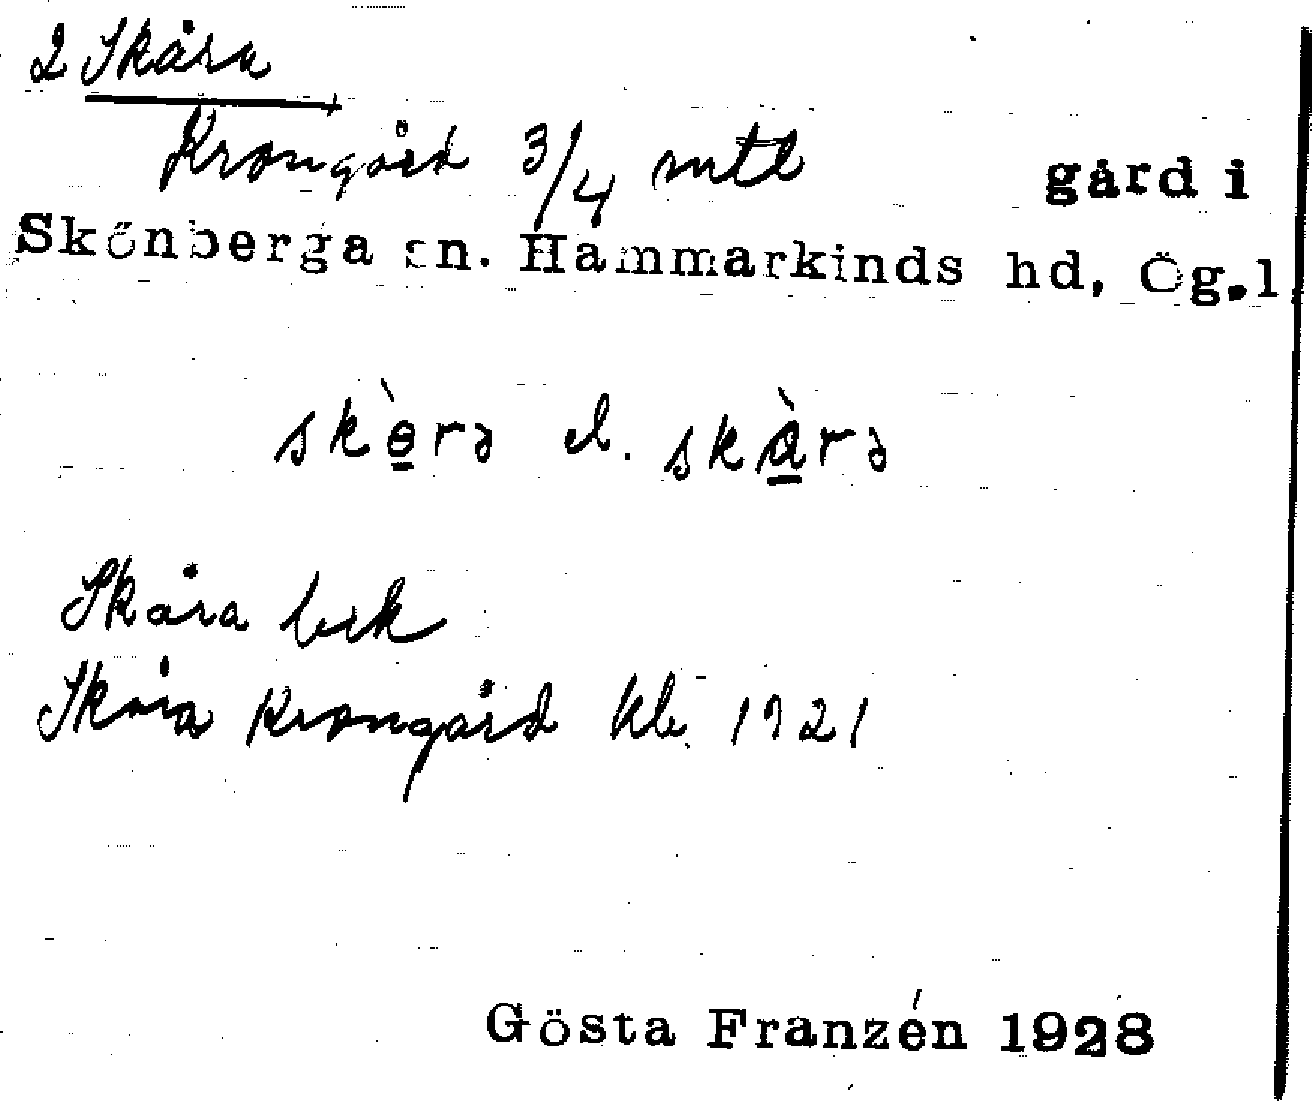 2 Skåra
Krongård 3/4 mtl gård i
Skönberga sn. Hammarkinds hd, Ög.l
skè̱rə el. skà̱rə
Skåra bek
Skåra Krongård Kb. 1921
Gösta Franzén 1928